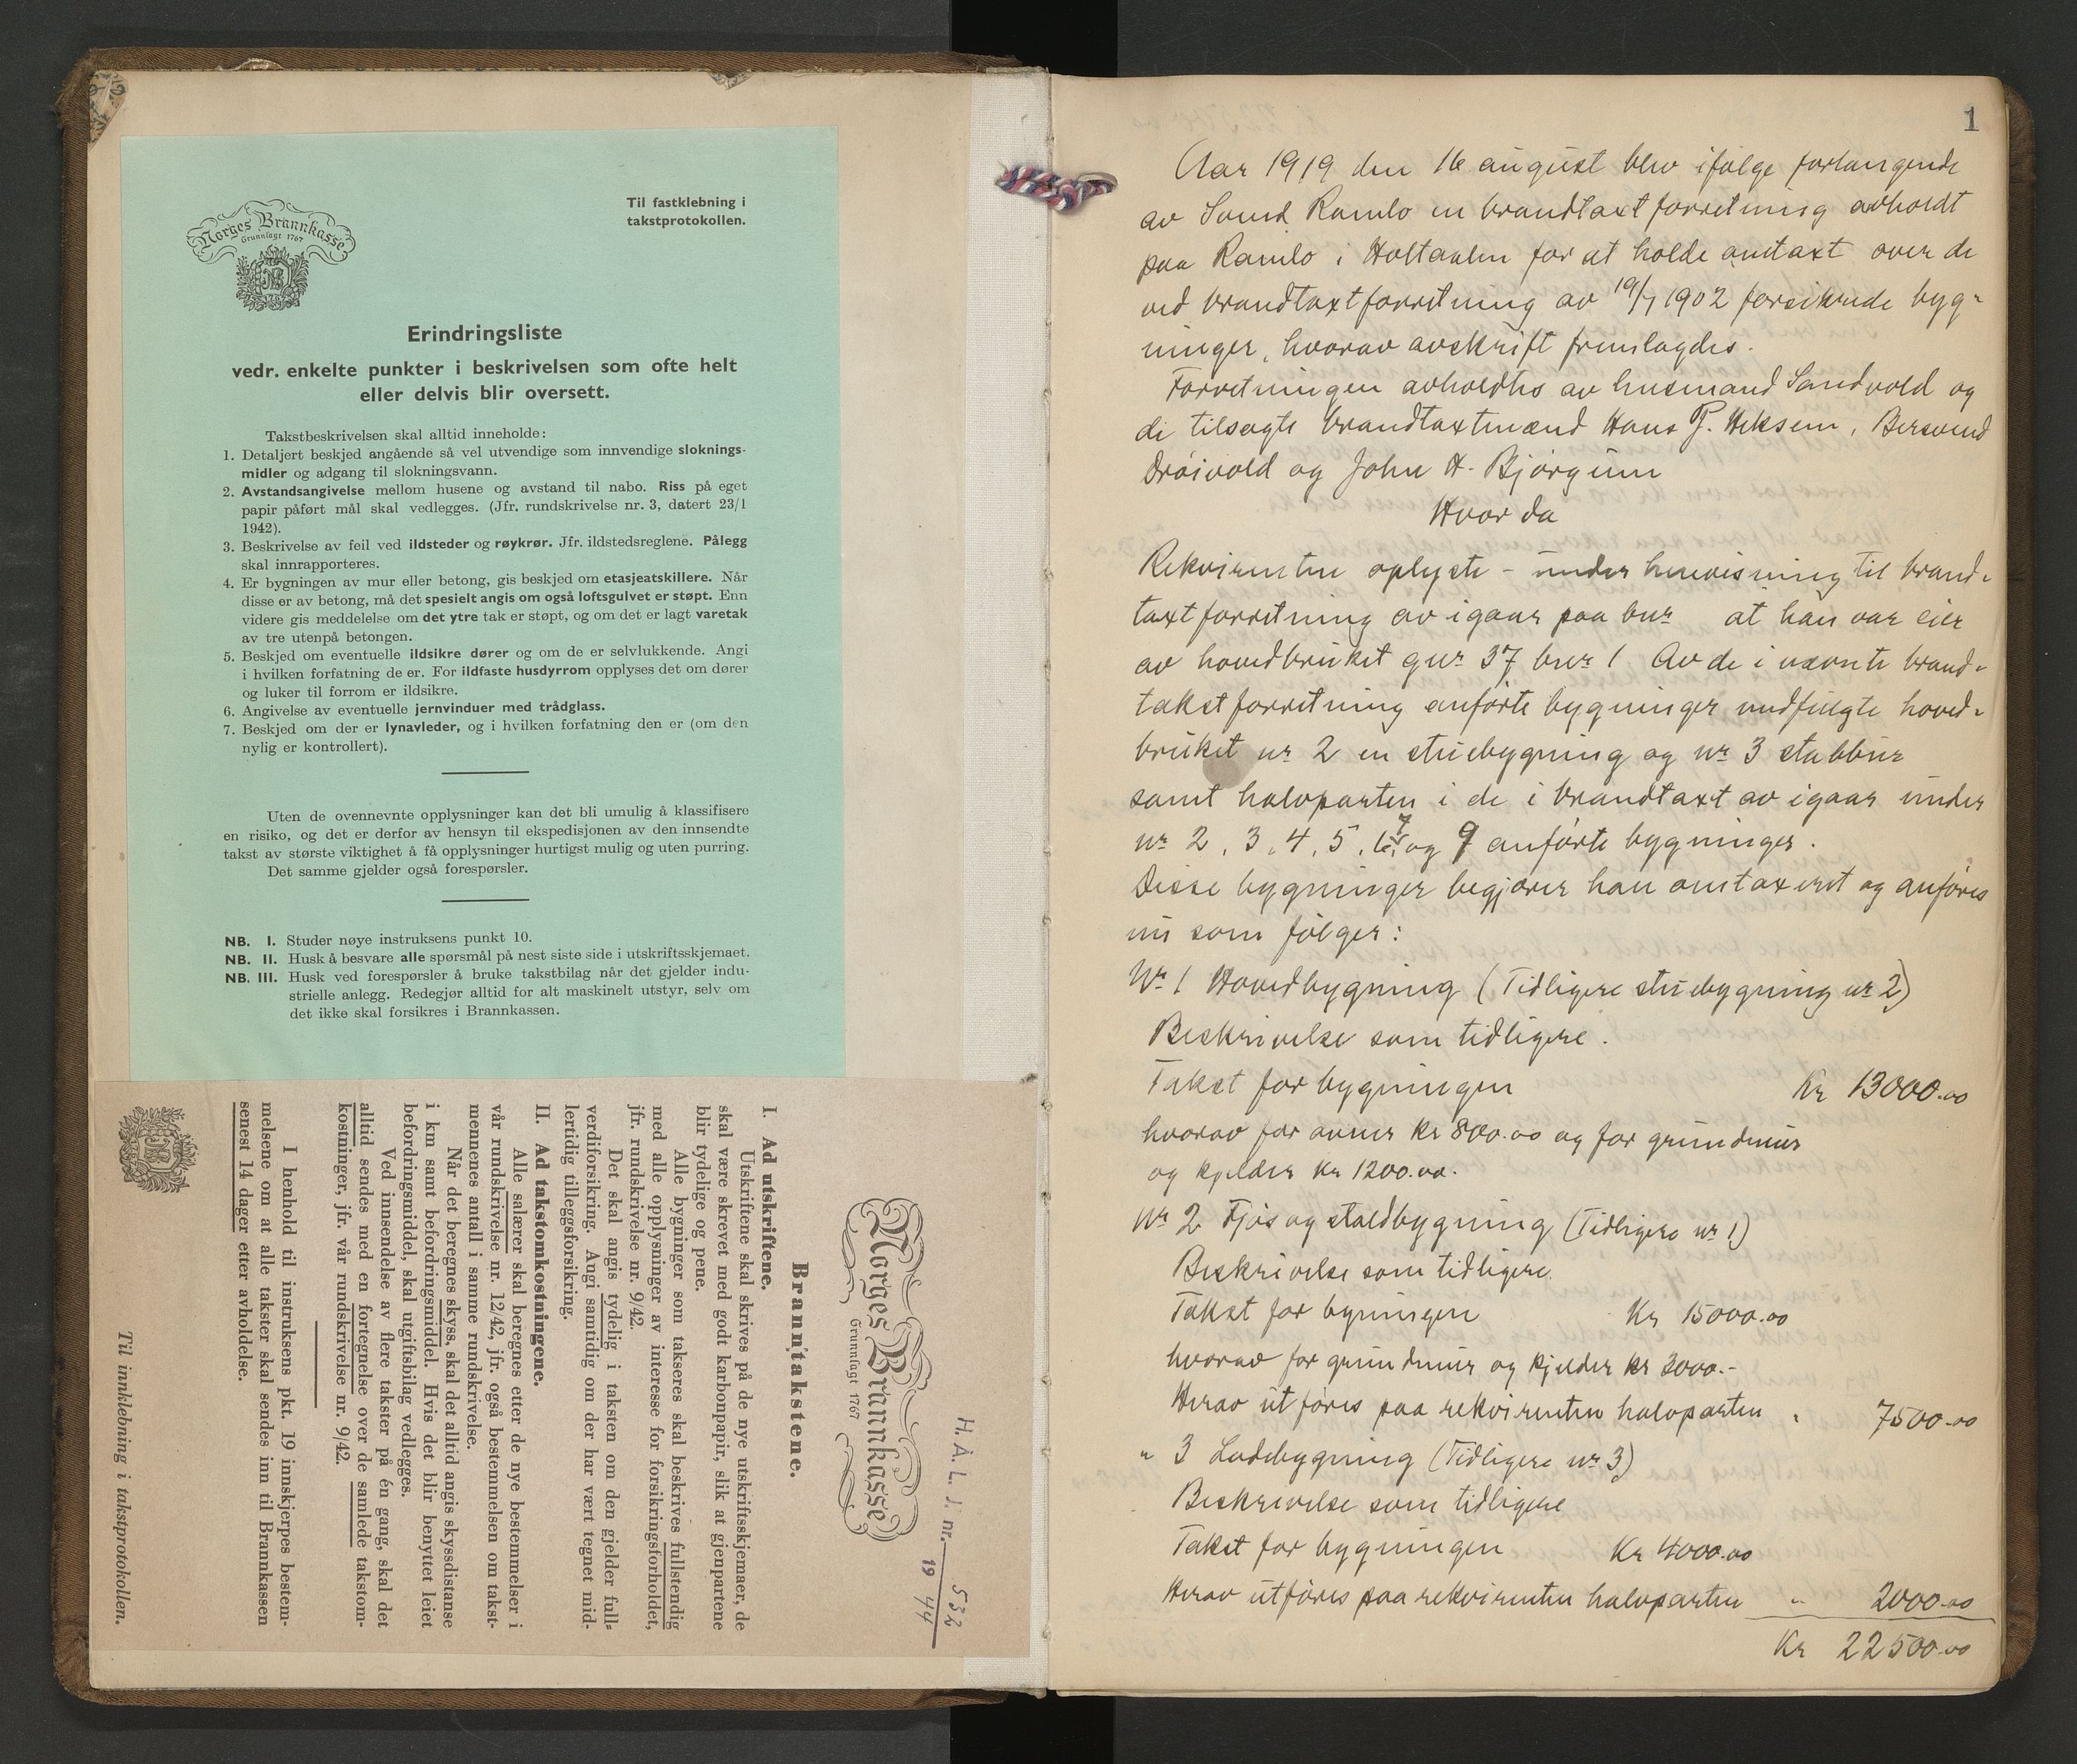 Norges Brannkasse
Grunnlagt 1767
Til fastklebning i
takstprotokollen.
Erindringsliste
vedr. enkelte punkter i beskrivelsen som ofte helt
eller delvis blir oversett.
Takstbeskrivelsen skal alltid inneholde:
1. Detaljert beskjed angående så vel utvendige som innvendige sloknings-
midler og adgang til slokningsvann.
2. Avstandsangivelse mellom husene og avstand til nabo. Riss på eget
papir påført mål skal vedlegges. (Jfr. rundskrivelse nr. 3, datert 23/1
1942).
3. Beskrivelse av feil ved ildsteder og røykrør. Jfr. ildstedsreglene. Pålegg
skal innrapporteres.
4. Er bygningen av mur eller betong, gis beskjed om etasjeatskillere. Når
disse er av betong, må det spesielt angis om også loftsgulvet er støpt. Enn
videre gis meddelelse om det ytre tak er støpt, og om det er lagt varetak
av tre utenpå betongen.
5. Beskjed om eventuelle ildsikre dører og om de er selvlukkende. Angi
i hvilken forfatning de er. For ildfaste husdyrrom opplyses det om dører
og luker til forrom er ildsikre.
6. Angivelse av eventuelle jernvinduer med trådglass.
7. Beskjed om der er lynavleder, og i hvilken forfatning den er (om den
nylig er kontrollert).
Uten de ovennevnte opplysninger kan det bli umulig å klassifisere
en risiko, og det er derfor av hensyn til ekspedisjonen av den innsendte
takst av største viktighet å få opplysninger hurtigst mulig og uten purring.
Det samme gjelder også forespørsler.
NB. I. Studer nøye instruksens punkt 10.
NB. II. Husk å besvare alle spørsmål på nest siste side i utskriftsskjemaet.
NB. III. Husk ved forespørsler å bruke takstbilag når det gjelder indu-
strielle anlegg. Redegjør alltid for alt maskinelt utstyr, selv om
det ikke skal forsikres i Brannkassen.
H. A. L. J. nr. 532
19 44
Norges Brannkasse
Grunnlagt 1767
Branntakstene.
I. Ad utskriftene.
Utskriftene skal skrives på de nye utskriftsskjemaer, de
skal være skrevet med godt karbonpapir, slik at gjenpartene
blir tydelige og pene.
Alle bygninger som takseres skal beskrives fullstendig
med alle opplysninger av interesse for forsikringsforholdet,
jfr. rundskrivelse nr. 9/42.
Det skal angis tydelig i taksten om den gjelder full-
verdiforsikring. Angi samtidig om der har vært tegnet mid-
lertidig tilleggsforsikring.
II. Ad takstomkostningene.
Alle salærer skal beregnes etter de nye bestemmelser i
vår rundskrivelse nr. 12/42, jfr. også bestemmelsen om takst-
mennenes antall i samme rundskrivelse.
Når det beregnes skyss, skal det alltid angis skyssdistanse
i km samt befordringsmiddel. Hvis det blir benyttet leiet
befordringsmiddel, skal utgiftsbilag vedlegges.
Ved innsendelse av flere takster på én gang, skal det
alltid sendes med en fortegnelse over de samlede takstom-
kostninger, jfr. vår rundskrivelse nr. 9/42.
I henhold til instruksens pkt. 19 innskjerpes bestem-
melsene om at alle takster skal sendes inn til Brannkassen
senest 14 dager etter avholdelse.
Til innklebning i takstprotokollen.
1
Aar 1919 den 16 august blev ifølge forlangende
av Ramlo en brandtaxtforretning avholdt
paa Ramlo i Holtaalen for at holde omtaxt over de
ved brandtaxtforretning av 19/7 1902 forsikrede byg-
ninger, hvorav avskrift fremlagdes.
Forretningen avholdtes av Sandvold og
de tilsagte brandtaxtmænd Hans P. Heksem, Bersvend
Drøivold og John H. Bjørgum
Hvor da
Rekvirenten oplyste - under henvisning til brand-
taxtforretning av igaar paa bnr at han var eier
av hovedbruket gnr 37 bnr 1. Av de i nævnte brand-
takstforretning anførte bygninger medfulgte hoved-
bruket nr 2 en stuebygning og nr 3 stabbur
samt halvparten i de i brandtaxt av igaar under
nr 2, 3, 4, 5, 6, 7 og 9 anførte bygninger.
Disse bygninger begjærer han omtaxeret og anføres
nu som følger:
Nr 1 Hovedbygning (Tidligere stuebygning nr 2)
Beskrivelse som tidligere.
Takst for bygningen Kr 13000.00
hvorav for ovner Kr 800.00 og for grundmur
og kjelder Kr 1200.00.
Nr 2 Fjøs og staldbygning (Tidligere nr 1)
Beskrivelse som tidligere.
Takst for bygningen Kr 15000.00
hvorav for grundmur og kjelder Kr 3000.-
Herav utføres paa rekvirenten halvparten " 7500.00
" 3 Ladebygning (Tidligere nr 3)
Beskrivelse som tidligere
Takst for bygningen Kr 4000.00
Herav utføres paa rekvirenten halvparten " 2000.00
Kr 22500.00